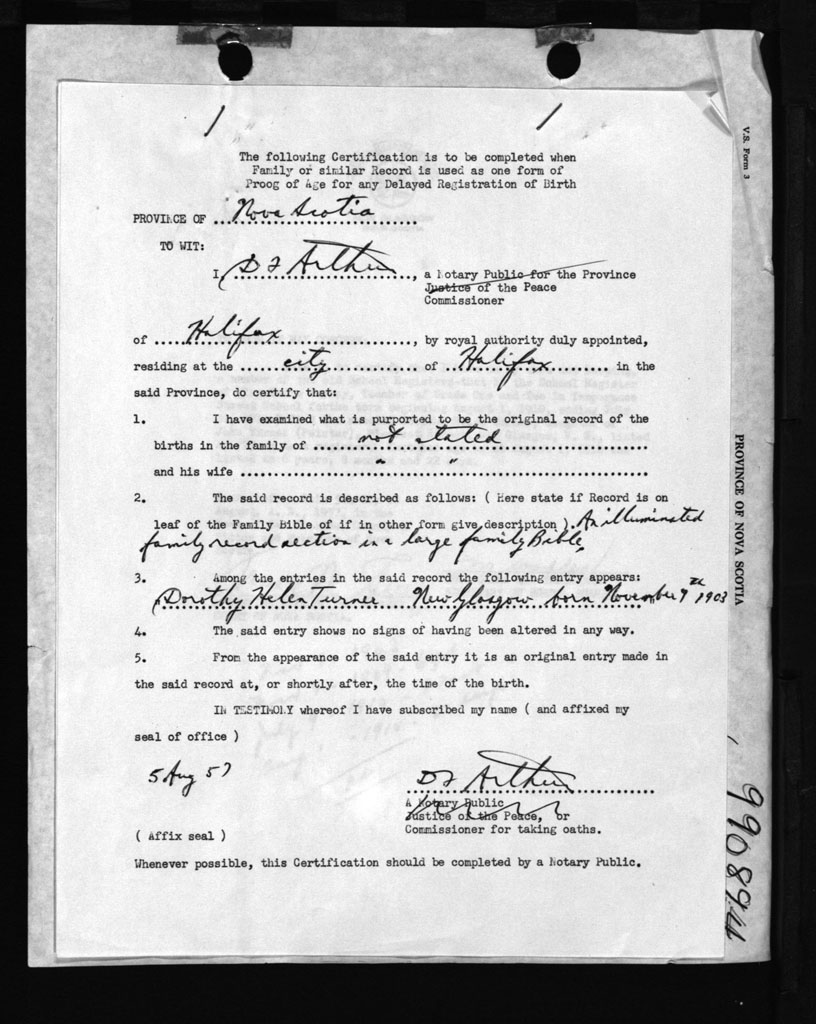 The following Certification is to be completed when
Family or similar Record is used as one form of
Proog of Age for any Delayed Registration of Birth
PROVINCE OF Nova Scotia
TO WIT:
I, D F Arthur, a Notary Public for the Province
Justice of the Peace
Commissioner
of Halifax, by royal authority duly appointed,
residing at the city of Halifax in the
said Province, do certify that:
1. I have examined what is purported to be the original record of the
births in the family of not stated
and his wife " "
2. The said record is described as follows: ( Here state if Record is on
leaf of the Family Bible of if in other form give description ). An illuminated
family record section in a large family Bible,
3. Among the entries in the said record the following entry appears:
Dorothy Helen Turner New Glasgow born November 9th 1903
4. The said entry shows no signs of having been altered in any way.
5. From the appearance of the said entry it is an original entry made in
the said record at, or shortly after, the time of the birth.
IN TESTIMONY whereof I have subscribed my name ( and affixed my
seal of office )
5 Aug 57
D F Arthur
A Notary Public
Justice of the Peace, or
Commissioner for taking oaths.
( Affix seal )
Whenever possible, this Certification should be completed by a Notary Public.
V.S. Form 3
PROVINCE OF NOVA SCOTIA